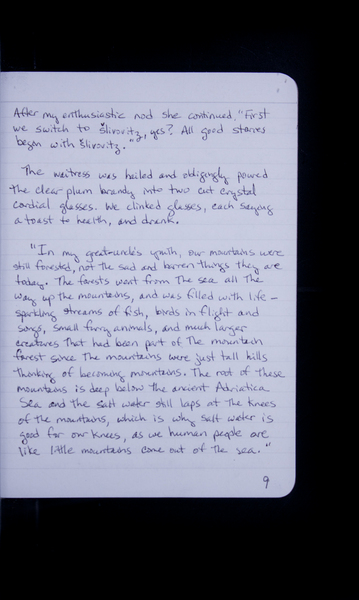 After my enthusiastic nod she continued, "First
we switch to šlivovitz, yes? All good stories
began with šlivovitz."
The waitress was hailed and obligingly poured
the clear plum brandy into two cut crystal
cordial glasses. We clinked glasses, each saying
a toast to health, and drank.
"In my great-uncle's youth, our mountains were
still forested, not the sad and barren things they are
today. The forests went from the sea all the
way up the mountains, and was filled with life –
sparkling streams of fish, birds in flight and
songs, small furry animals, and much larger
creatures that had been part of the mountain
forest since the mountains were just tall hills
thinking of becoming mountains. The root of these
mountains is deep below the ancient Adriatica
Sea and the salt water still laps at the knees
of the mountains, which is why salt water is
good for our knees, as we human people are
like little mountains come out of the sea."
9